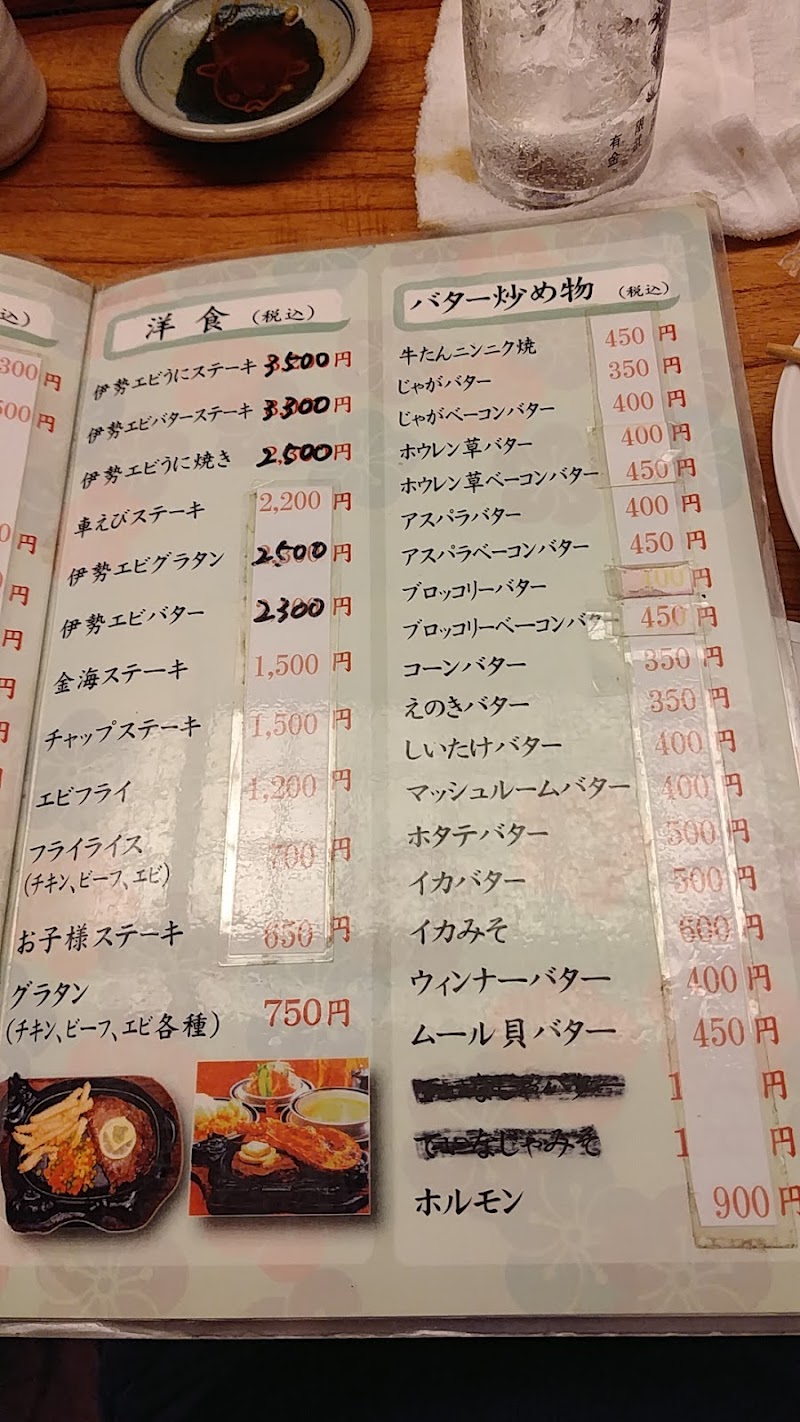 有金
込）
300円
500円
0円
円
円
円
円
洋食（税込）
伊勢エビうにステーキ 3500円
伊勢エビバターステーキ 3300円
伊勢エビうに焼き 2,500円
車えびステーキ 2,200円
伊勢エビグラタン 2500円
伊勢エビバター 2300円
金海ステーキ 1,500円
チャップステーキ 1,500円
エビフライ 1,200円
フライライス 700円
（チキン、ビーフ、エビ）
お子様ステーキ 650円
グラタン
（チキン、ビーフ、エビ各種） 750円
バター炒め物（税込）
牛たんニンニク焼 450円
じゃがバター 350円
じゃがベーコンバター 400円
ホウレン草バター 400円
ホウレン草ベーコンバター 450円
アスパラバター 400円
アスパラベーコンバター 450円
ブロッコリーバター 400円
ブロッコリーベーコンバター 450円
コーンバター 350円
えのきバター 350円
しいたけバター 400円
マッシュルームバター 400円
ホタテバター 500円
イカバター 500円
イカみそ 600円
ウィンナーバター 400円
ムール貝バター 450円
1 円
1 円
ホルモン 900円